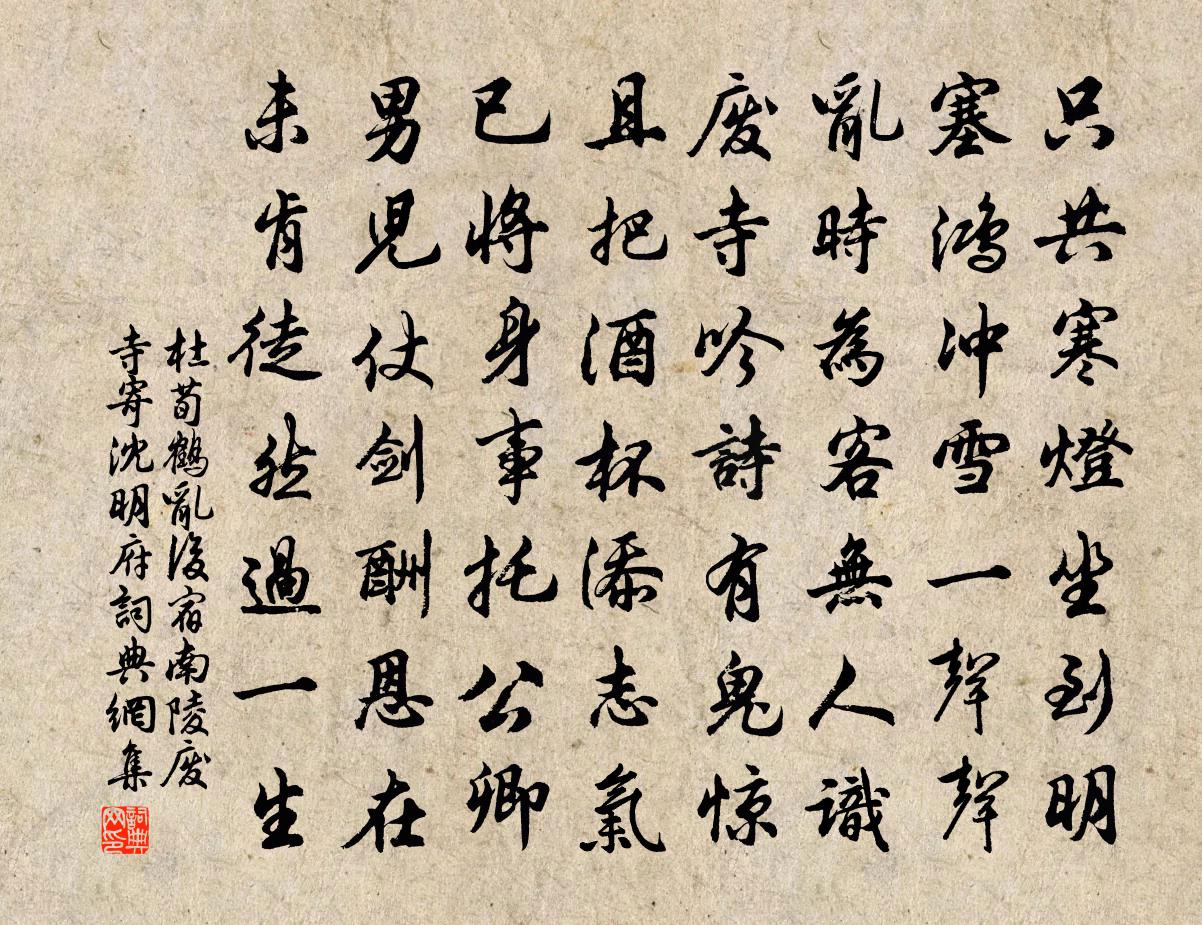 只共寒燈坐到明
塞鴻冲雪一聲聲
亂時為客無人識
废寺吟詩有鬼惊
且把酒杯添志氣
已將身事托公卿
男兒仗剑酬恩在
未肯徒然過一生
杜荀鶴亂後宿南陵废
寺寄沈明府詞典網集
詞典
网印